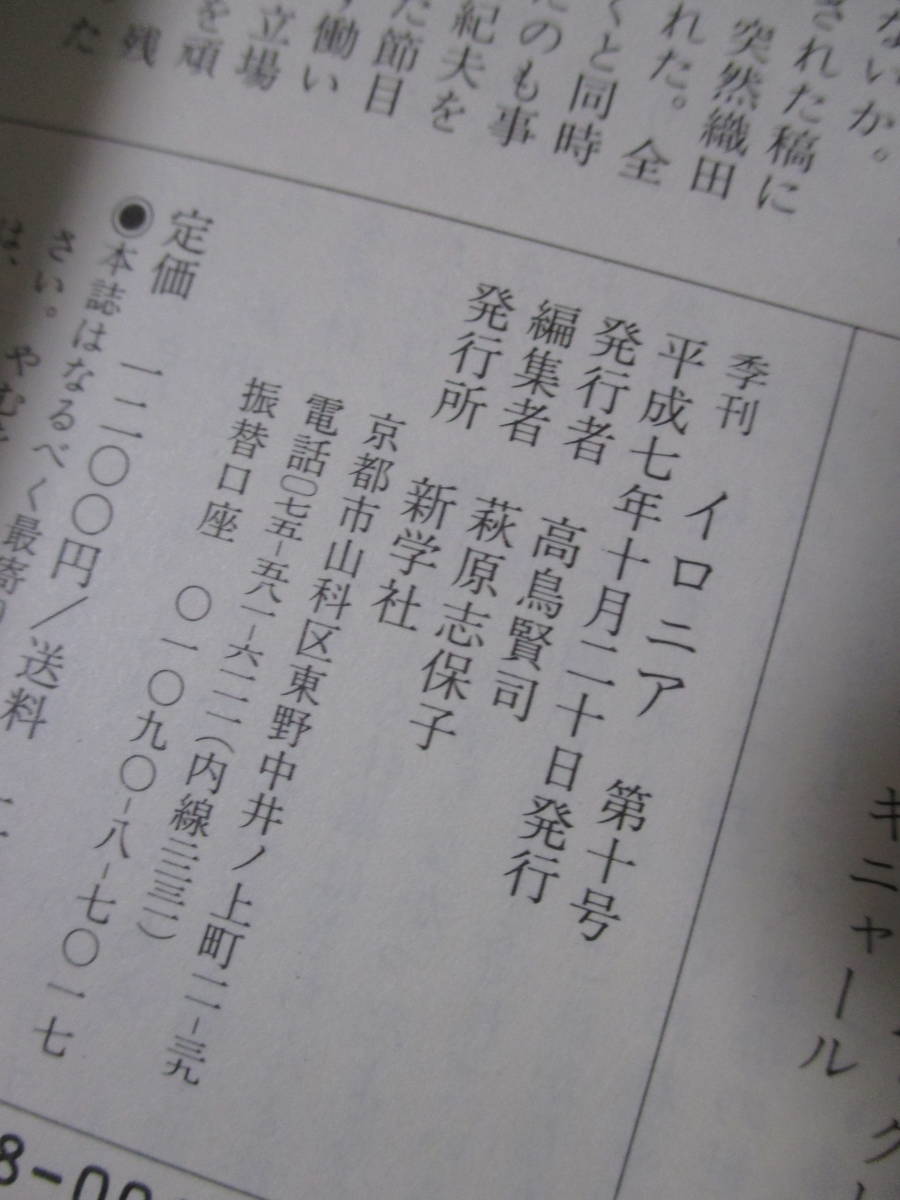 ないか。
された稿に
突然織田
れた。全
くと同時
たのも事
紀夫を
た節目
働い
立場
を頑
残
た
季刊 イロニア 第十号
平成七年十月二十日発行
発行者 高鳥賢司
編集者 萩原志保子
発行所 新学社
京都市山科区東野中井ノ上町一一-三九
電話〇七五-五八一-六一一一(内線三三一)
振替口座 〇一〇九〇-八-七〇一七
定価 一二〇〇円/送料
◉本誌はなるべく最寄り
さい。やむを
は、
キニャール
8-00